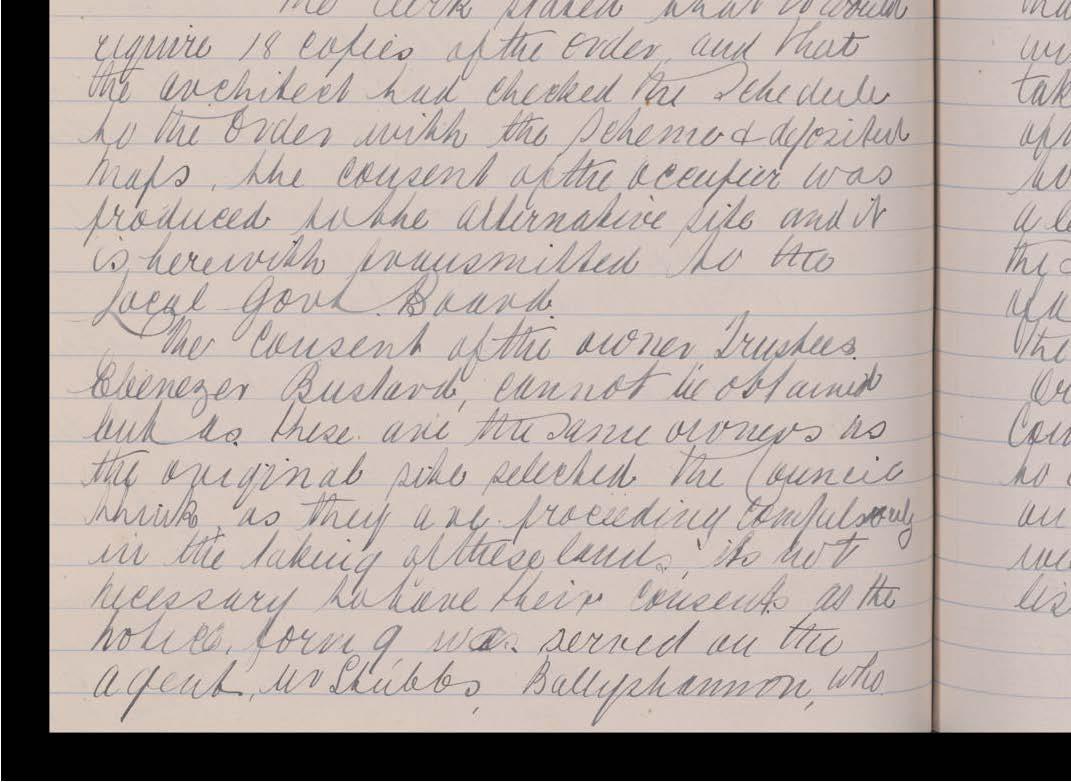 The Clerk stated that we would
require 18 copies of the order, and that
the architect had checked the Schedule
to the Order with the Scheme & deposited
Maps, the consent of the occupier was
produced to the alternative site and it
is herewith transmitted to the
Local Govt. Board.
The consent of the owner Trustees
Ebenezer Bustard, cannot be obtained
but as these are the same owners as
the original site selected the Council
think, as they are proceeding Compulsorily
in the taking of these lands, its not
necessary to have their consents as the
notice, form 9 was served on the
agent, Mr Stubbs, Ballyshannon, who
tak
the
of a
the
Or
Coun
to